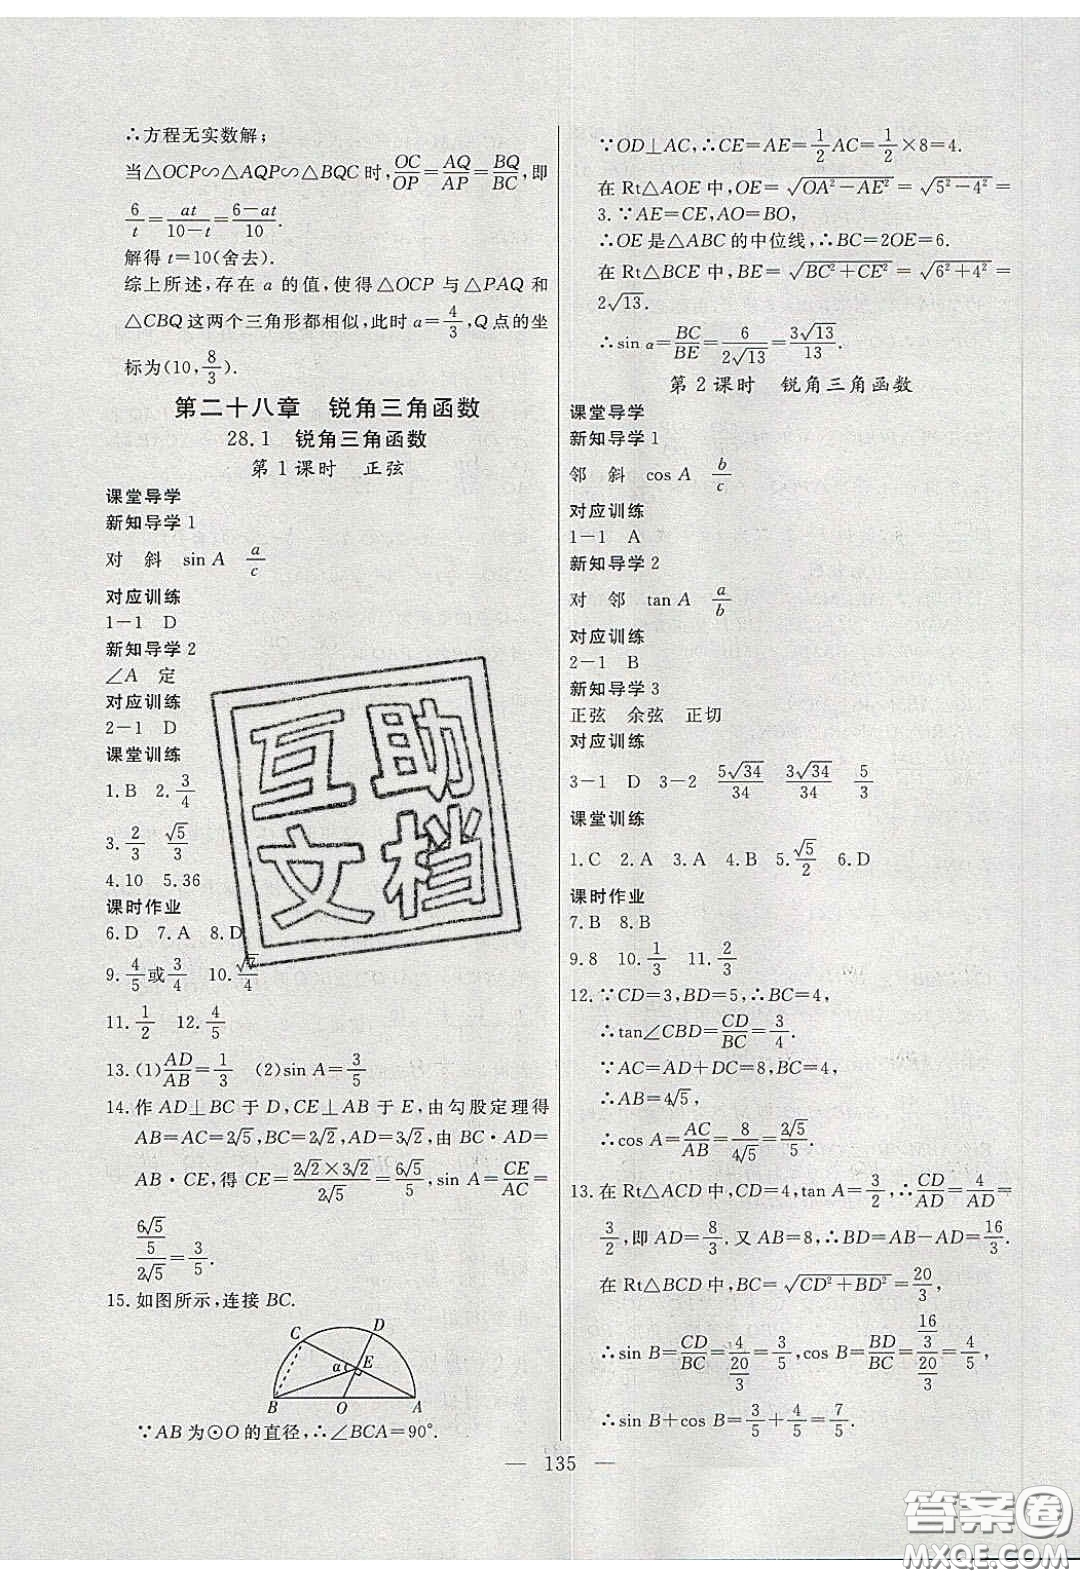 ∴方程无实数解;
当△OCP∽△AQP∽△BQC时,OC/OP=AQ/AP=BQ/BC,即
6/t=at/(10-t)=(6-at)/10.
解得t=10(舍去).
综上所述,存在a的值,使得△OCP与△PAQ和
△CBQ这两个三角形都相似,此时a=4/3,Q点的坐
标为(10,8/3).
第二十八章 锐角三角函数
28.1 锐角三角函数
第1课时 正弦
课堂导学
新知导学1
对 斜 sin A a/c
对应训练
1-1 D
新知导学2
∠A 定
对应训练
2-1 D
课堂训练
1.B 2.3/4
3.2/3 √5/3
4.10 5.36
课时作业
6.D 7.A 8.D
9.4/5或3/4 10.√7/4
11.1/2 12.4/5
13.(1)AD/AB=1/3 (2)sin A=3/5
14.作AD⊥BC于D,CE⊥AB于E,由勾股定理得
AB=AC=2√5,BC=2√2,AD=3√2,由BC·AD=
AB·CE,得CE=(2√2×3√2)/(2√5)=6√5/5,sin A=CE/AC=
(6√5/5)/(2√5)=3/5.
15.如图所示,连接BC.
C D
α E
B O A
∵AB为⊙O的直径,∴∠BCA=90°.
∵OD⊥AC,∴CE=AE=1/2AC=1/2×8=4.
在Rt△AOE中,OE=√(OA²-AE²)=√(5²-4²)=
3.∵AE=CE,AO=BO,
∴OE是△ABC的中位线,∴BC=2OE=6.
在Rt△BCE中,BE=√(BC²+CE²)=√(6²+4²)=
2√13.
∴sin α=BC/BE=6/(2√13)=3√13/13.
第2课时 锐角三角函数
课堂导学
新知导学1
邻 斜 cos A b/c
对应训练
1-1 A
新知导学2
对 邻 tan A a/b
对应训练
2-1 B
新知导学3
正弦 余弦 正切
对应训练
3-1 D 3-2 5√34/34 3√34/34 5/3
课堂训练
1.C 2.A 3.A 4.B 5.√5/2 6.D
课时作业
7.B 8.B
9.8 10.1/3 11.2/3
12.∵CD=3,BD=5,∴BC=4,
∴tan∠CBD=CD/BC=3/4.
∵AC=AD+DC=8,BC=4,
∴AB=4√5,
∴cos A=AC/AB=8/(4√5)=2√5/5.
13.在Rt△ACD中,CD=4,tan A=3/2,∴CD/AD=4/AD=
3/2,即AD=8/3.又AB=8,∴BD=AB-AD=16/3.
在Rt△BCD中,BC=√(CD²+BD²)=20/3,
∴sin B=CD/BC=4/(20/3)=3/5,cos B=BD/BC=(16/3)/(20/3)=4/5,
∴sin B+cos B=3/5+4/5=7/5.
— 135 —
互助
文档
答案圈
MXQE.COM